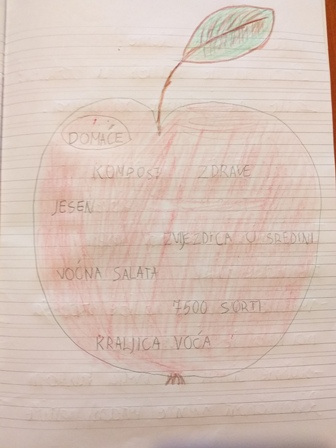 DOMAĆE
KOMPOST ZDRAVE
JESEN
ZVJEZDICA U SREDINI
VOĆNA SALATA
7500 SORTI
KRALJICA VOĆA